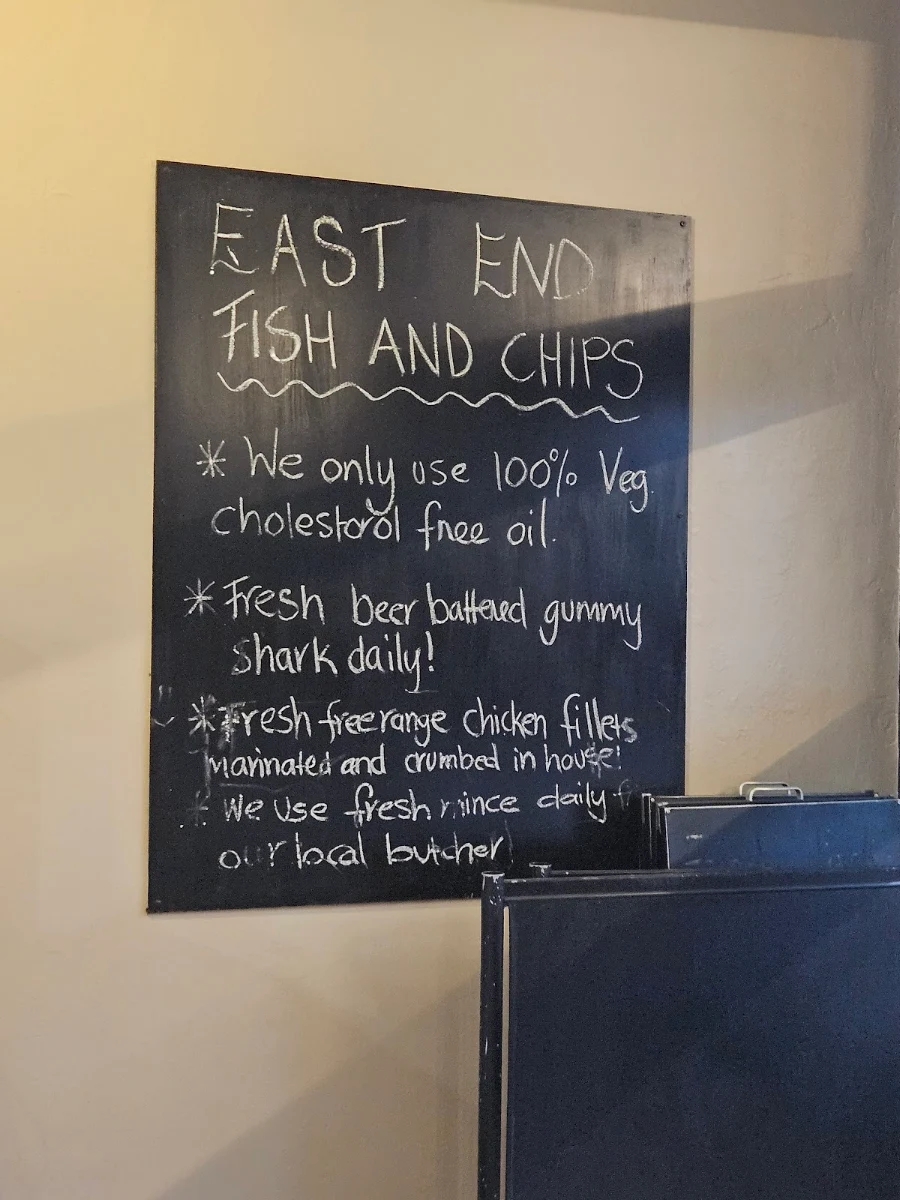 EAST END
FISH AND CHIPS
* We only use 100% Veg
cholestorol free oil.
* Fresh beer battered gummy
shark daily!
* Fresh free range chicken fillets
marinated and crumbed in house!
* We use fresh mince daily
our local butcher